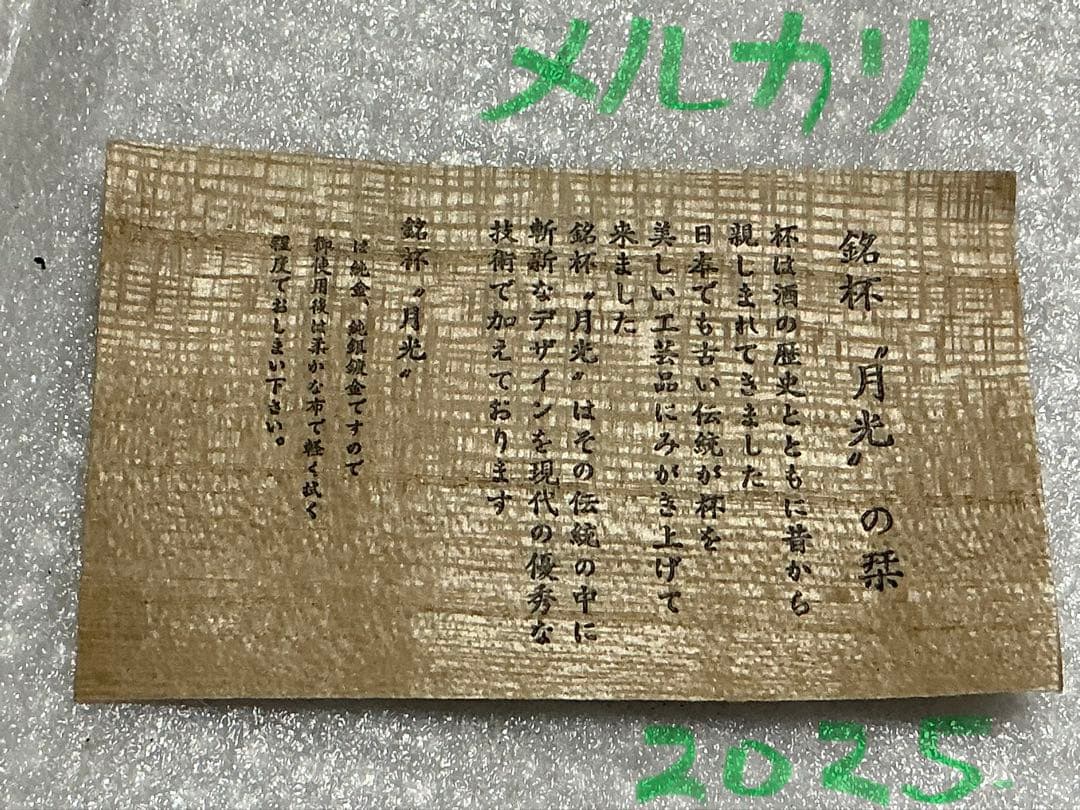 メルカリ
銘杯〝月光〟の栞
杯は酒の歴史とともに昔から
親しまれてきました
日本でも古い伝統が杯を
美しい工芸品にみがき上げて
来ました
銘杯〝月光〟はその伝統の中に
斬新なデザインを現代の優秀な
技術で加えております
銘杯〝月光〟
は純金、純銀鍍金ですので
御使用後は柔かな布で軽く拭く
程度でおしまい下さい。
2025.